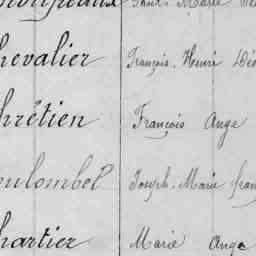 Marie
hevalier François. Henri Dés
hrétien François Ange
oulombel Joseph. Marie fran
hartier Marie Ange